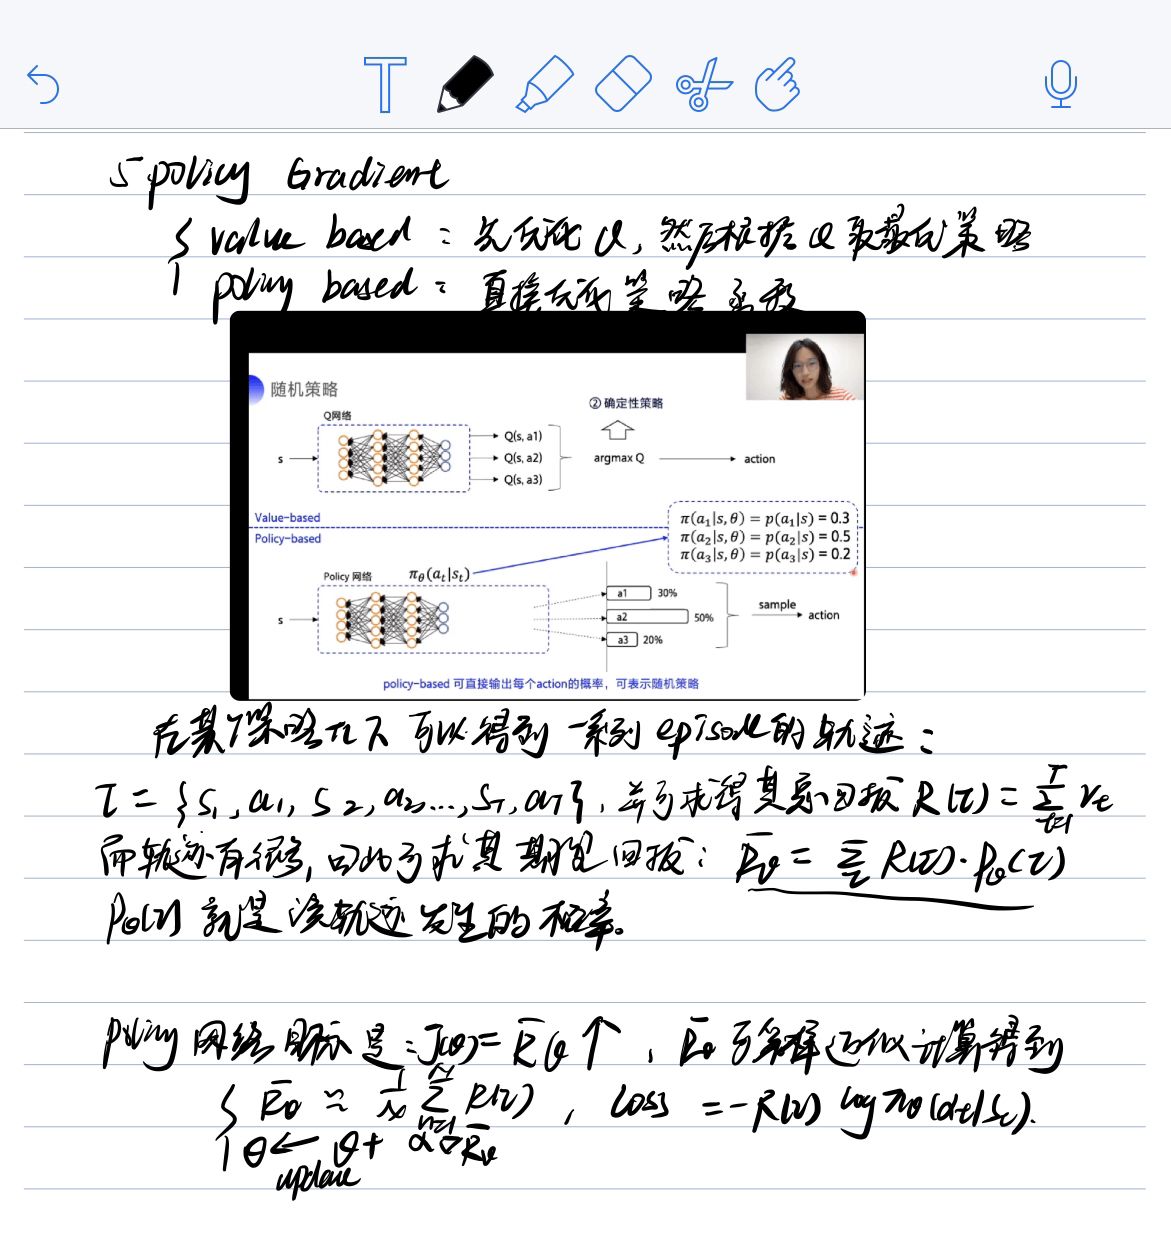 5 policy Gradient
value based: 先优化Q, 然后根据Q取最优策略
policy based: 直接优化策略函数
随机策略
Q网络
② 确定性策略
s
Q(s, a1)
Q(s, a2)
Q(s, a3)
argmax Q
action
Value-based
Policy-based
π(a₁|s, θ) = p(a₁|s) = 0.3
π(a₂|s, θ) = p(a₂|s) = 0.5
π(a₃|s, θ) = p(a₃|s) = 0.2
Policy 网络
π_θ(a_t|s_t)
s
a1 30%
a2 50%
a3 20%
sample
action
policy-based 可直接输出每个action的概率，可表示随机策略
在某个策略π下可以得到一系列episode的轨迹:
τ = {s₁, a₁, s₂, a₂, ..., s_T, a_T}, 并可求得其总回报R(τ) = Σ_{t=1}^{T} r_t
而轨迹有很多, 因此可求其期望回报: R̄_θ = Σ_τ R(τ)·P_θ(τ)
P_θ(τ) 就是该轨迹发生的概率。
policy 网络目标是: J(θ) = R̄_θ ↑, R̄_θ 可采样近似计算得到
R̄_θ ≈ 1/N Σ_{n=1}^{N} R(τ), Loss = -R(τ) log π_θ(a_t|s_t).
θ ← θ + α∇R̄_θ
update